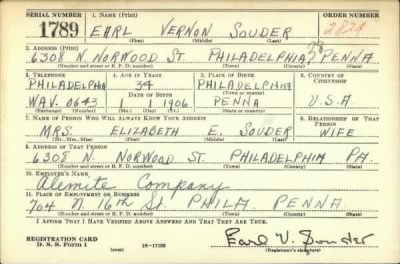 SERIAL NUMBER
1. NAME (Print)
ORDER NUMBER
1789
EARL VERNON SOUDER
(First) (Middle) (Last)
2. ADDRESS (Print)
6308 N. NORWOOD ST. PHILADELPHIA PENNA
(Number and street or R. F. D. number) (Town) (County) (State)
3. TELEPHONE
4. AGE IN YEARS
5. PLACE OF BIRTH
6. COUNTRY OF CITIZENSHIP
PHILADELPHIA
34
PHILADELPHIA
DATE OF BIRTH
(Town or county)
WAV. 0643
1 1 1906
PENNA
U.S.A.
(Exchange) (Number)
(Mo.) (Day) (Yr.)
(State or country)
7. NAME OF PERSON WHO WILL ALWAYS KNOW YOUR ADDRESS
8. RELATIONSHIP OF THAT PERSON
MRS. ELIZABETH E. SOUDER
WIFE
(Mr., Mrs., Miss) (First) (Middle) (Last)
9. ADDRESS OF THAT PERSON
6308 N. NORWOOD ST. PHILADELPHIA PA.
(Number and street or R. F. D. number) (Town) (County) (State)
10. EMPLOYER'S NAME
Alemite Company
11. PLACE OF EMPLOYMENT OR BUSINESS
704 N. 16th St. PHILA. PENNA.
(Number and street or R. F. D. number) (Town) (County) (State)
I AFFIRM THAT I HAVE VERIFIED ABOVE ANSWERS AND THAT THEY ARE TRUE.
REGISTRATION CARD
D. S. S. Form 1
(over)
Earl V. Souder
(Registrant's signature)